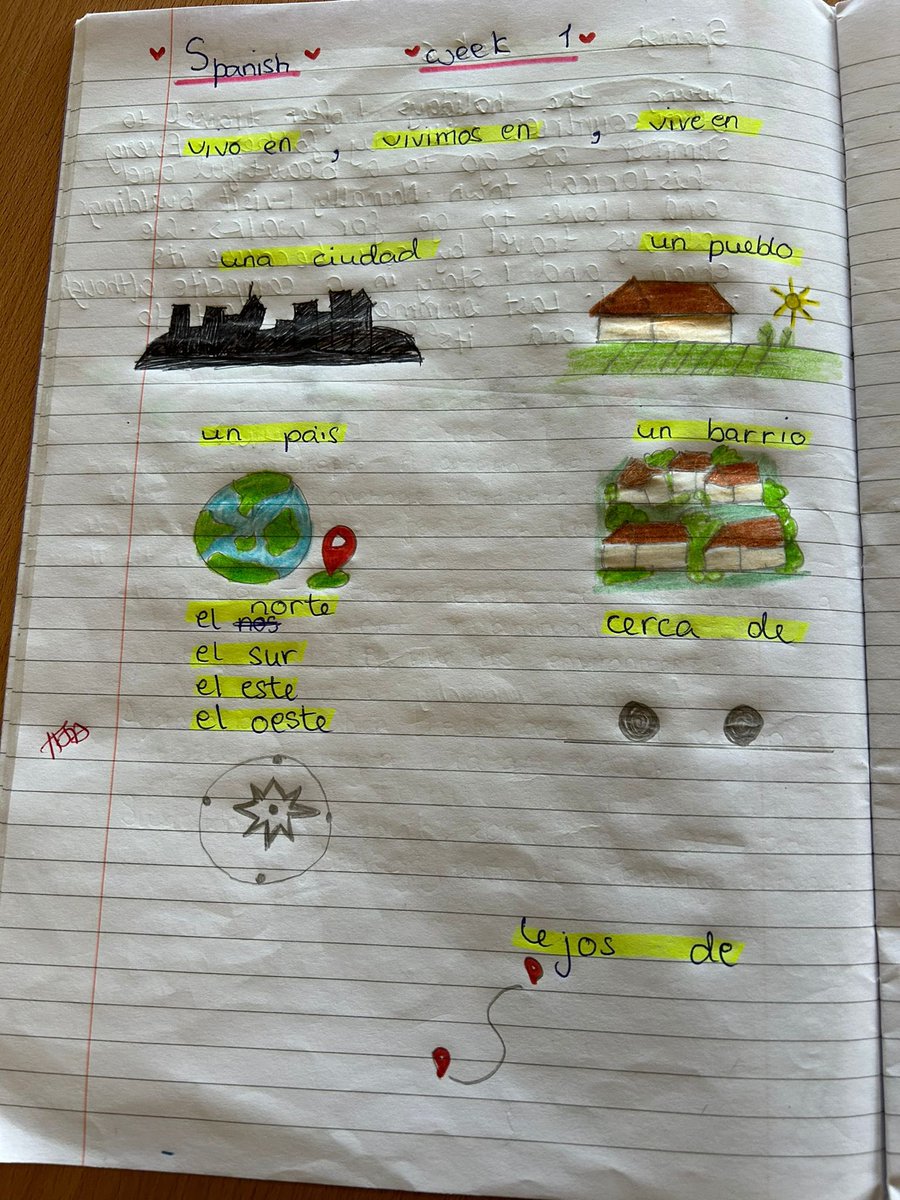 Spanish week 1
vivo en, vivimos en, vive en
una ciudad
un pueblo
un país
un barrio
el nos norte
el sur
el este
el oeste
cerca de
lejos de